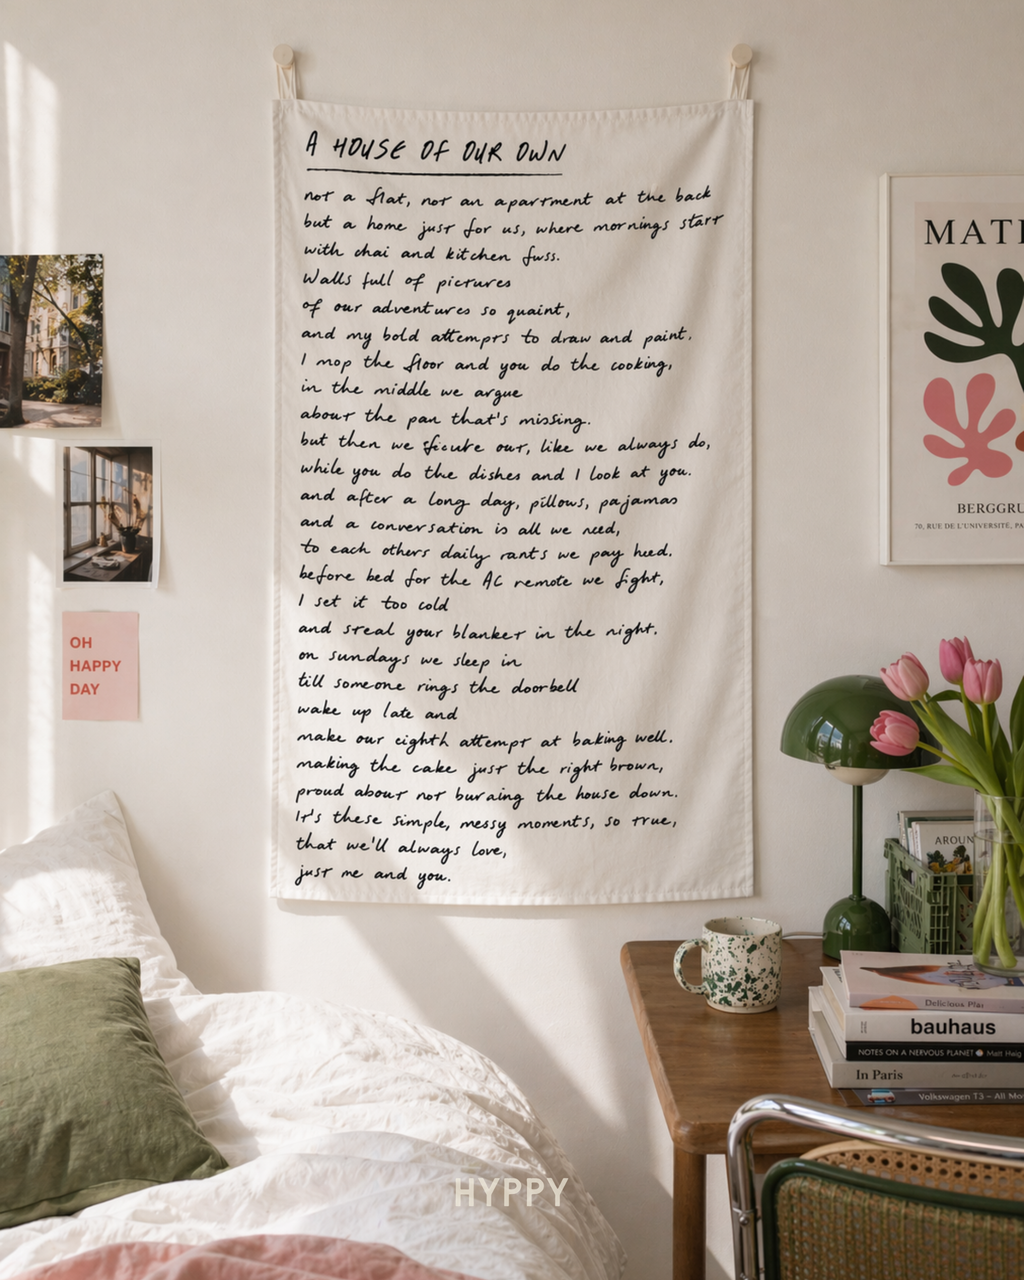 A HOUSE OF OUR OWN
not a flat, not an apartment at the back
but a home just for us, where mornings start
with chai and kitchen fuss.
Walls full of pictures
of our adventures so quaint,
and my bold attempts to draw and paint.
I mop the floor and you do the cooking,
in the middle we argue
about the pan that's missing.
but then we out, like we always do,
while you do the dishes and I look at you.
and after a long day, pillows, pajamas
and a conversation is all we need,
to each others daily rants we pay heed.
before bed for the AC remote we fight,
I set it too cold
and steal your blanket in the night.
on sundays we sleep in
till someone rings the doorbell
wake up late and
make our eighth attempt at baking well.
making the cake just the right brown,
proud about not burning the house down.
It's these simple, messy moments, so true,
that we'll always love,
just me and you.
OH
HAPPY
DAY
MATI
BERGGRU
70, RUE DE L'UNIVERSITÉ, PA
AROUN
Delicious
bauhaus
NOTES ON A NERVOUS PLANET Matt Haig
In Paris
Volkswagen T3 – All Mo
HYPPY